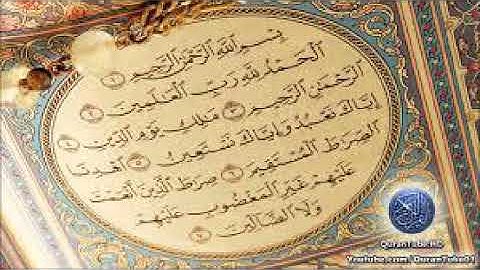 بِسْمِ اللَّهِ الرَّحْمَٰنِ الرَّحِيمِ ١
الْحَمْدُ لِلَّهِ رَبِّ الْعَالَمِينَ ٢
الرَّحْمَٰنِ الرَّحِيمِ ٣ مَالِكِ يَوْمِ الدِّينِ ٤
إِيَّاكَ نَعْبُدُ وَإِيَّاكَ نَسْتَعِينُ ٥ اهْدِنَا
الصِّرَاطَ الْمُسْتَقِيمَ ٦ صِرَاطَ الَّذِينَ أَنْعَمْتَ
عَلَيْهِمْ غَيْرِ الْمَغْضُوبِ عَلَيْهِمْ
وَلَا الضَّالِّينَ ٧
QuranTube.HD
Youtube.com/QuranTube01